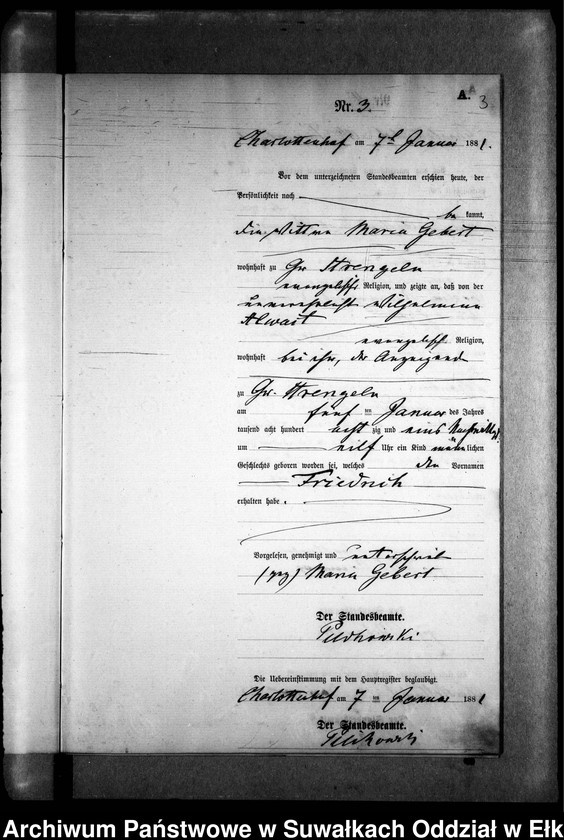 A.
3
Nr. 3.
Charlottenhof am 7t Januar 1881.
Vor dem unterzeichneten Standesbeamten erschien heute, der
Persönlichkeit nach
be kannt,
die Wittwe Maria Gebert
wohnhaft zu Gr. Strengeln
evangelischer Religion, und zeigte an, daß von der
unverehelicht Wilhelmine
Alwast
evangelisch Religion,
wohnhaft bei ihr, der Anzeigend
zu Gr. Strengeln
am fünf ten Januar des Jahres
tausend acht hundert acht zig und eins Nachmittags
um eilf Uhr ein Kind männ lichen
Geschlechts geboren worden sei, welches den Vornamen
Friedrich
erhalten habe.
Vorgelesen, genehmigt und unterschrieb
(gez) Maria Gebert
Der Standesbeamte.
Die Uebereinstimmung mit dem Hauptregister beglaubigt.
Charlottenhof am 7 ten Januar 1881
Der Standesbeamte.
Archiwum Państwowe w Suwałkach Oddział w Ełk